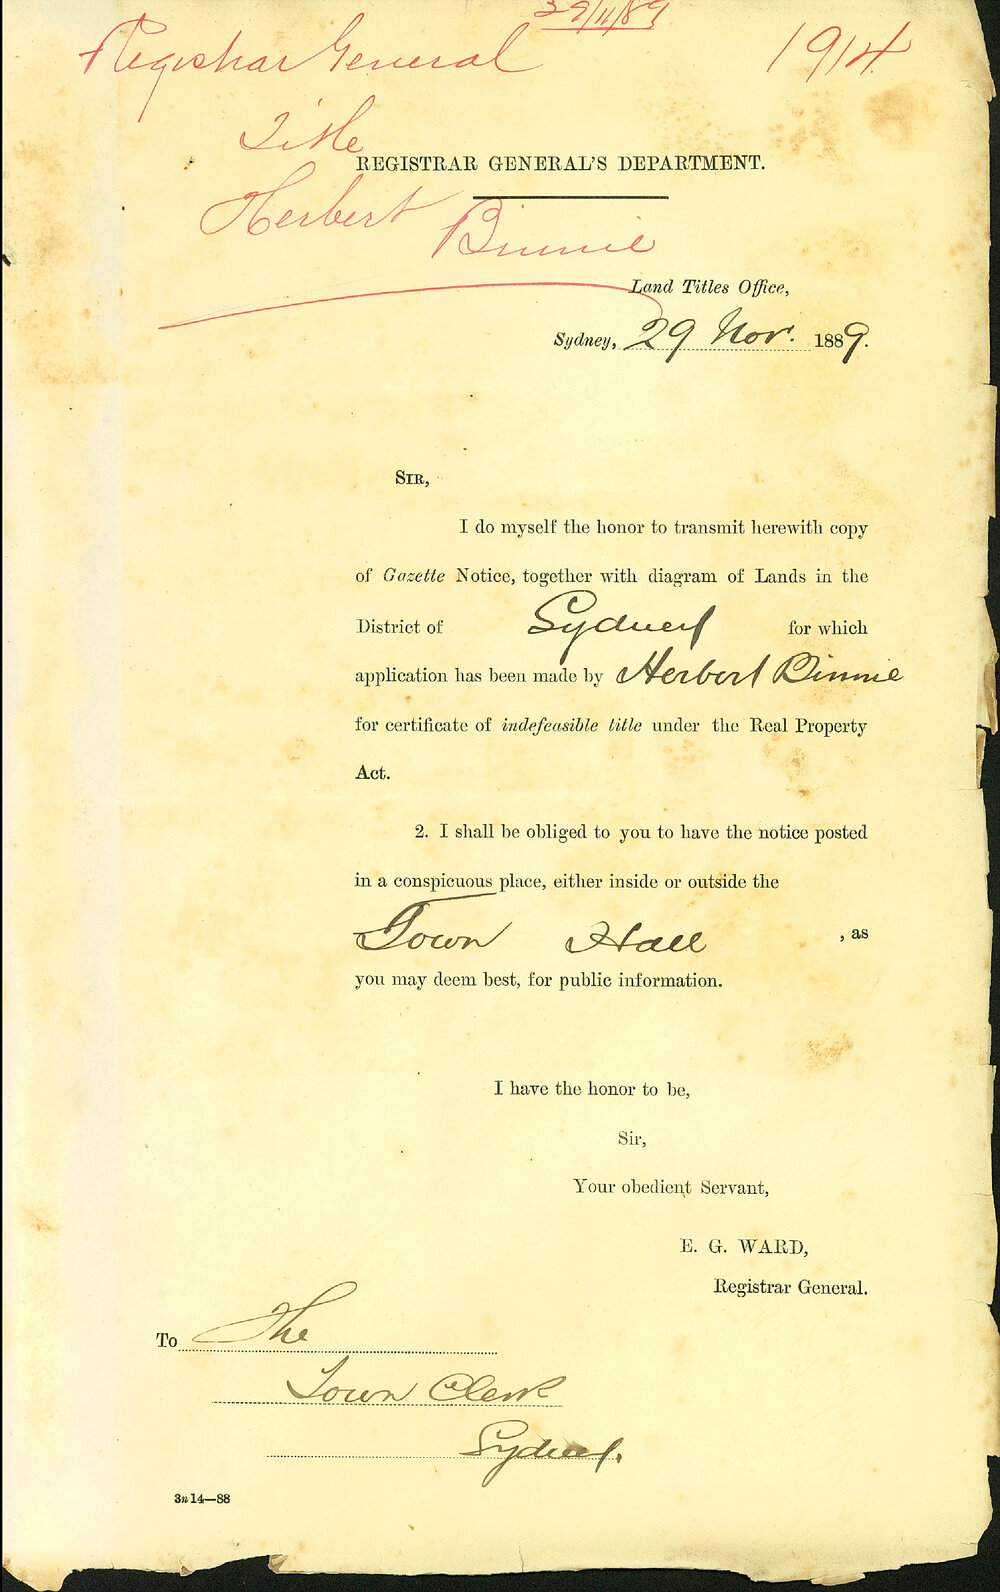 29/11/89
Registrar General 1914
Title
REGISTRAR GENERAL'S DEPARTMENT.
Herbert Binnie
Land Titles Office,
Sydney, 29 Nov. 1889.
SIR,
I do myself the honor to transmit herewith copy
of Gazette Notice, together with diagram of Lands in the
District of Sydney for which
application has been made by Herbert Binnie
for certificate of indefeasible title under the Real Property
Act.
2. I shall be obliged to you to have the notice posted
in a conspicuous place, either inside or outside the
Town Hall , as
you may deem best, for public information.
I have the honor to be,
Sir,
Your obedient Servant,
E. G. WARD,
Registrar General.
To The
Town Clerk
Sydney.
3n14—88